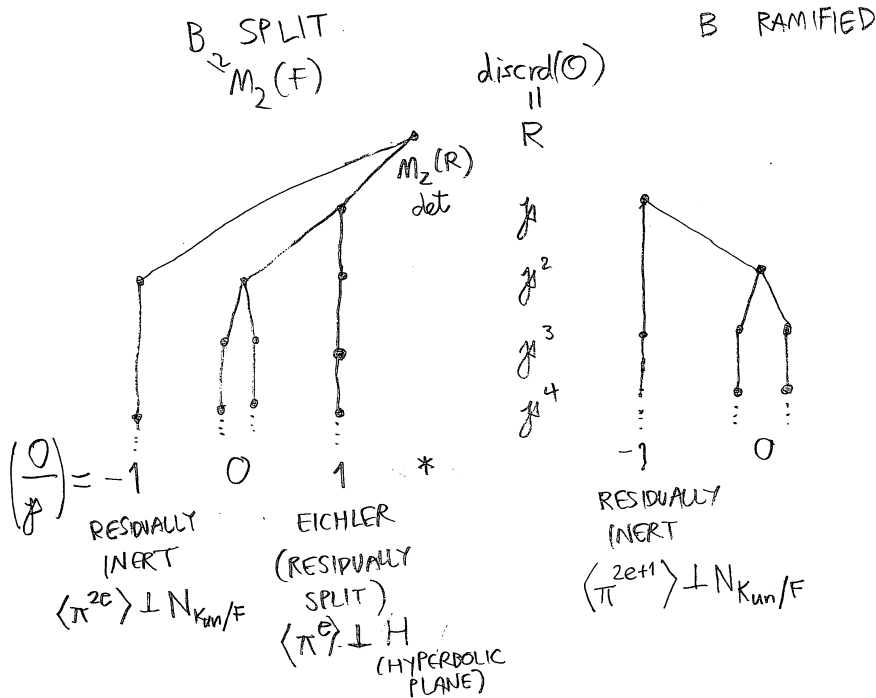 B SPLIT
≅
M₂(F)
B RAMIFIED
discrd(O)
||
R
M₂(R)
det
𝔭
𝔭²
𝔭³
𝔭⁴
(O/𝔭) = -1 0 1 *
-1 0
RESIDUALLY
INERT
⟨π^{2e}⟩ ⊥ N_{K_{un}/F}
EICHLER
(RESIDUALLY
SPLIT)
⟨π^e⟩ ⊥ H
(HYPERBOLIC
PLANE)
RESIDUALLY
INERT
⟨π^{2e+1}⟩ ⊥ N_{K_{un}/F}